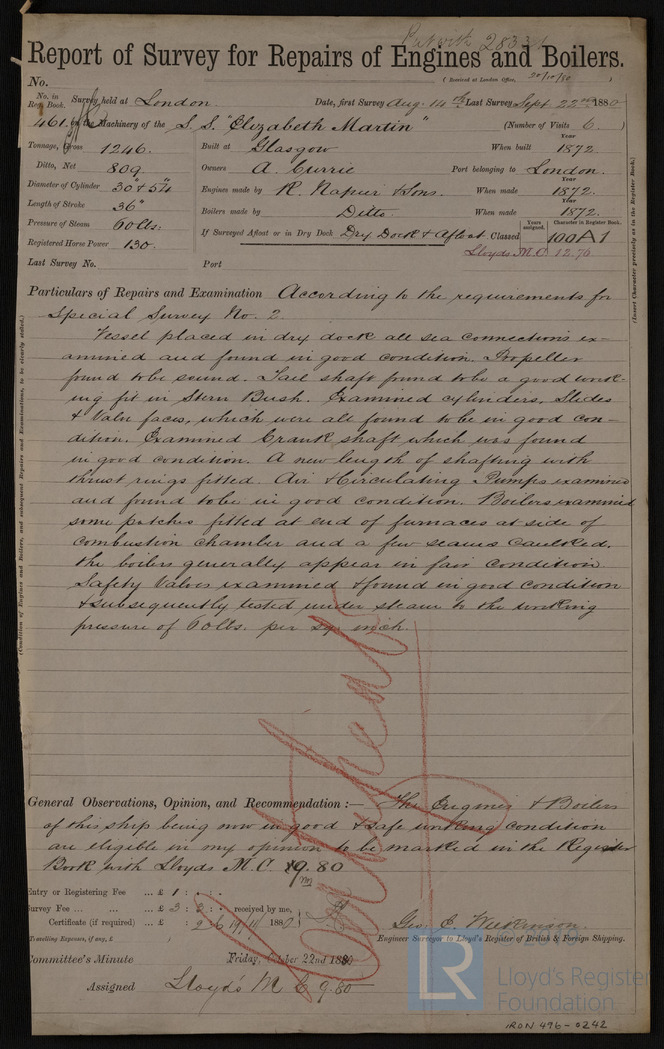 Put with 28334
Report of Survey for Repairs of Engines and Boilers.
No.
(Received at London Office, 20/10/80 )
No. in Reg. Book. Survey held at London Date, first Survey Aug. 14th Last Survey Sept. 22nd 1880
461 on the Machinery of the S.S. "Elizabeth Martin" (Number of Visits 6. )
Tonnage, Gross 1246. Built at Glasgow When built Year 1872
Ditto, Net 809. Owners A. Currie Port belonging to London.
Diameter of Cylinder 30" & 54" Engines made by R. Napier & Sons. When made Year 1872.
Length of Stroke 36" Boilers made by Ditto. When made Year 1872
Pressure of Steam 60 lbs. If Surveyed Afloat or in Dry Dock Dry Dock & Afloat Classed Years assigned. Character in Register Book. 100A1
Registered Horse Power 130. Lloyds M.C. 12.76
Last Survey No. Port
(Insert Character precisely as in the Register Book.)
(Condition of Engines and Boilers, and subsequent Repairs and Examinations, to be clearly stated.)
Particulars of Repairs and Examination According to the requirements for
Special Survey No. 2.
Vessel placed in dry dock all sea connections ex-
amined and found in good condition. Propeller
found to be sound. Tail shaft found to be a good work-
ing fit in Stern Bush. Examined cylinders, Slides
& Valve faces, which were all found to be in good con-
dition. Examined Crank shaft which was found
in good condition. A new length of shafting with
thrust rings fitted. Air & Circulating Pumps examined
and found to be in good condition. Boilers examined
some patches fitted at end of furnaces at side of
combustion chamber and a few seams caulked.
the boilers generally appear in fair condition
Safety Valves examined & found in good condition
& subsequently tested under steam to the working
pressure of 60 lbs. per sq. inch.
General Observations, Opinion, and Recommendation :— The Engines & Boilers
of this ship being now in good & safe working condition
are eligible in my opinion to be marked in the Register
Book with Lloyds M.C. 9.80
Entry or Registering Fee ... £ 1 : . : .
Survey Fee ... ... ... £ 3 : 3 : . received by me,
Certificate (if required) ... £ : 2 6 19/11 1880
(Travelling Expenses, if any, £ )
Geo. C. Wilkinson.
Engineer Surveyor to Lloyd's Register of British & Foreign Shipping.
Committee's Minute Friday, October 22nd 1880
Assigned Lloyd's M C 9.80
LR
Lloyd's Register
Foundation
IRON 496-0242